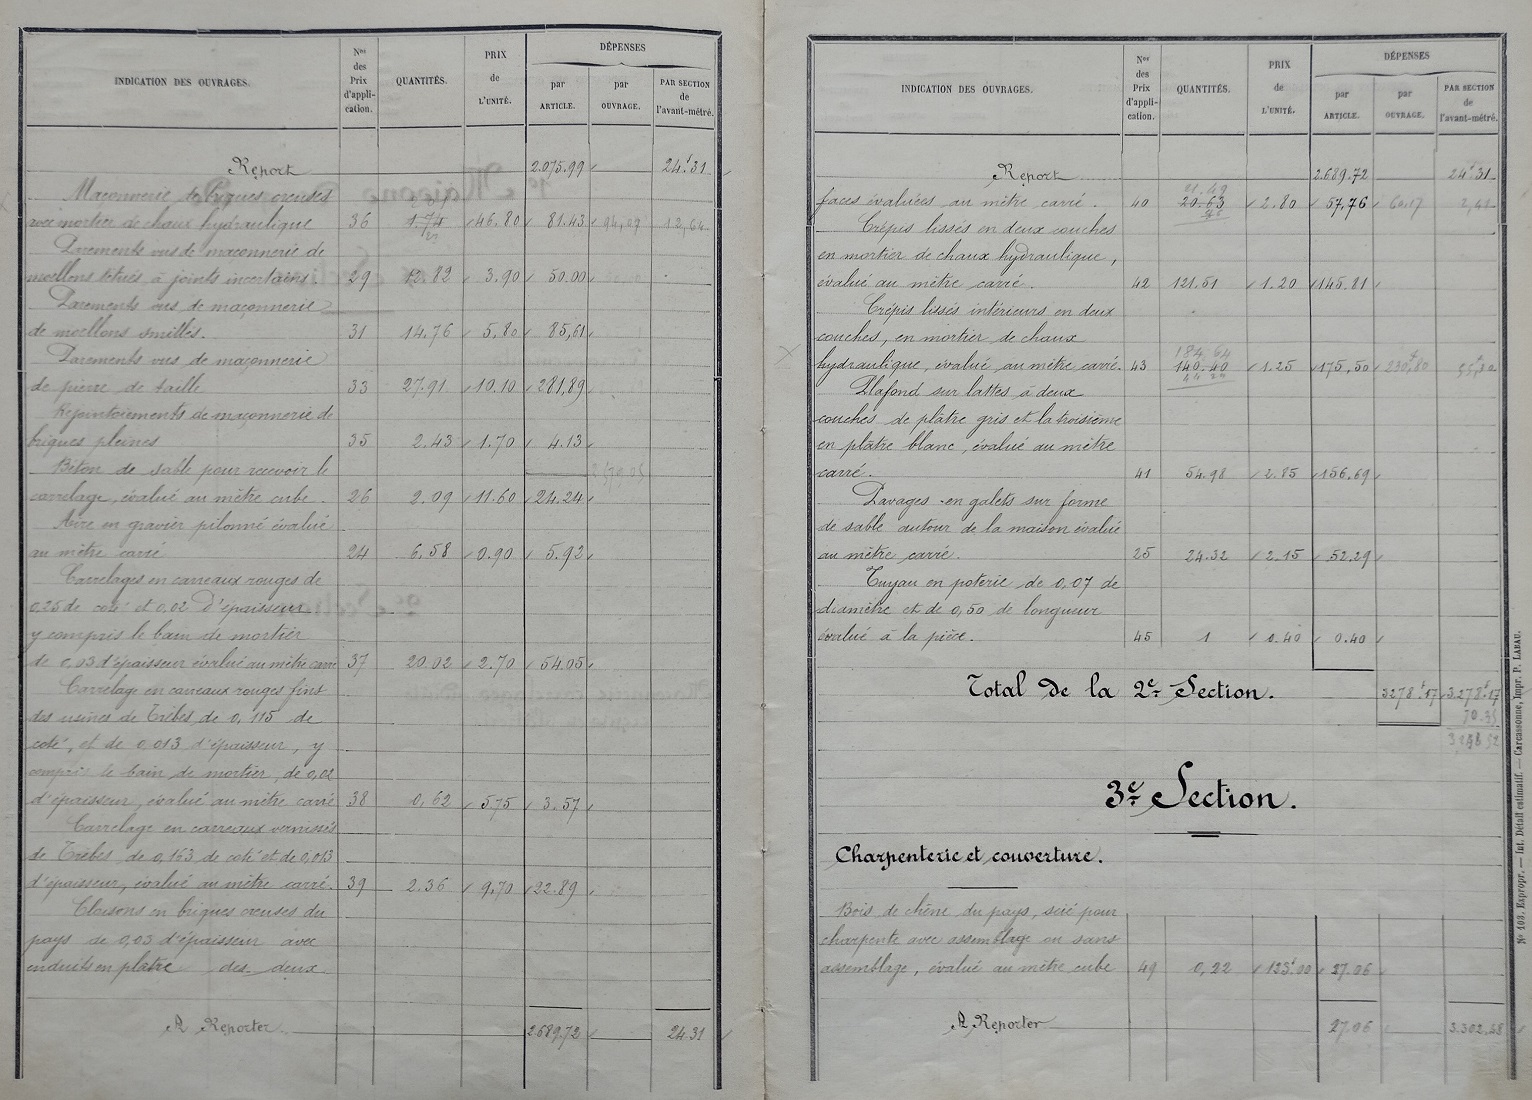 INDICATION DES OUVRAGES.
Nos des Prix d'appli-cation.
QUANTITÉS.
PRIX de L'UNITÉ.
DÉPENSES
par ARTICLE.
par OUVRAGE.
PAR SECTION de l'avant-métré.
Report 2.075.99 24f31
Maçonnerie de briques creuses
avec mortier de chaux hydraulique 36 1.74 46.80 81.43 94,07 12,64
Parements vus de maçonnerie de
moellons têtués à joints incertains. 29 12.82 3.90 50.00
Parements vus de maçonnerie
de moellons smillés. 31 14.76 5.80 85,61
Parements vus de maçonnerie
de pierre de taille 33 27.91 10.10 281.89
Rejointoiements de maçonnerie de
briques pleines 35 2.43 1.70 4.13
Béton de sable pour recevoir le
carrelage, évalué au mètre cube. 26 2.09 11.60 24.24
Aire en gravier pilonné évalué
au mètre carré 24 6.58 0.90 5.92
Carrelages en carreaux rouges de
0,25 de coté et 0,02 d'épaisseur
y compris le bain de mortier
de 0,03 d'épaisseur évalué au mètre carré 37 20.02 2.70 54.05
Carrelage en carreaux rouges fins
des usines de Trèbes de 0,115 de
coté, et de 0,013 d'épaisseur, y
compris le bain de mortier, de 0,02
d'épaisseur, évalué au mètre carré 38 0,62 5.75 3.57
Carrelage en carreaux vernissés
de Trèbes, de 0,163 de coté et de 0,013
d'épaisseur, évalué au mètre carré. 39 2.36 9.70 22.89
Cloisons en briques creuses du
pays de 0,03 d'épaisseur avec
enduits en plâtre des deux
A Reporter 2.689,72 24.31
INDICATION DES OUVRAGES.
Nos des Prix d'appli-cation.
QUANTITÉS.
PRIX de L'UNITÉ.
DÉPENSES
par ARTICLE.
par OUVRAGE.
PAR SECTION de l'avant-métré.
Report 2.689.72 24f.31
21.49
faces évaluées au mètre carré. 40 20.63 2.80 57,76 60.17 2,41
Crépis lissés en deux couches
en mortier de chaux hydraulique,
évalué au mètre carré. 42 121.51 1.20 145.81
Crépis lissés intérieurs en deux
couches, en mortier de chaux
184.64
hydraulique, évalué au mètre carré. 43 140.40 1.25 175,50 230f80 55f30
44 24
Plafond sur lattes à deux
couches de plâtre gris et la troisième
en plâtre blanc, évalué au mètre
carré. 41 54.98 2.85 156.69
Pavages en galets sur forme
de sable autour de la maison évalué
au mètre carré. 25 24.32 2.15 52.29
Tuyau en poterie de 0,07 de
diamètre et de 0,50 de longueur
évalué à la pièce. 45 1 0.40 0.40
Total de la 2e Section. 3278f.17 3.278f.17
70.35
3e Section.
Charpenterie et couverture.
Bois de chêne du pays, scié pour
charpente avec assemblage ou sans
assemblage, évalué au mètre cube 49 0,22 123f.00 27.06
A Reporter 27.06 3.302,48
No 103. Expropr. — Int. Détail estimatif. — Carcassonne, Impr. P. LABAU.